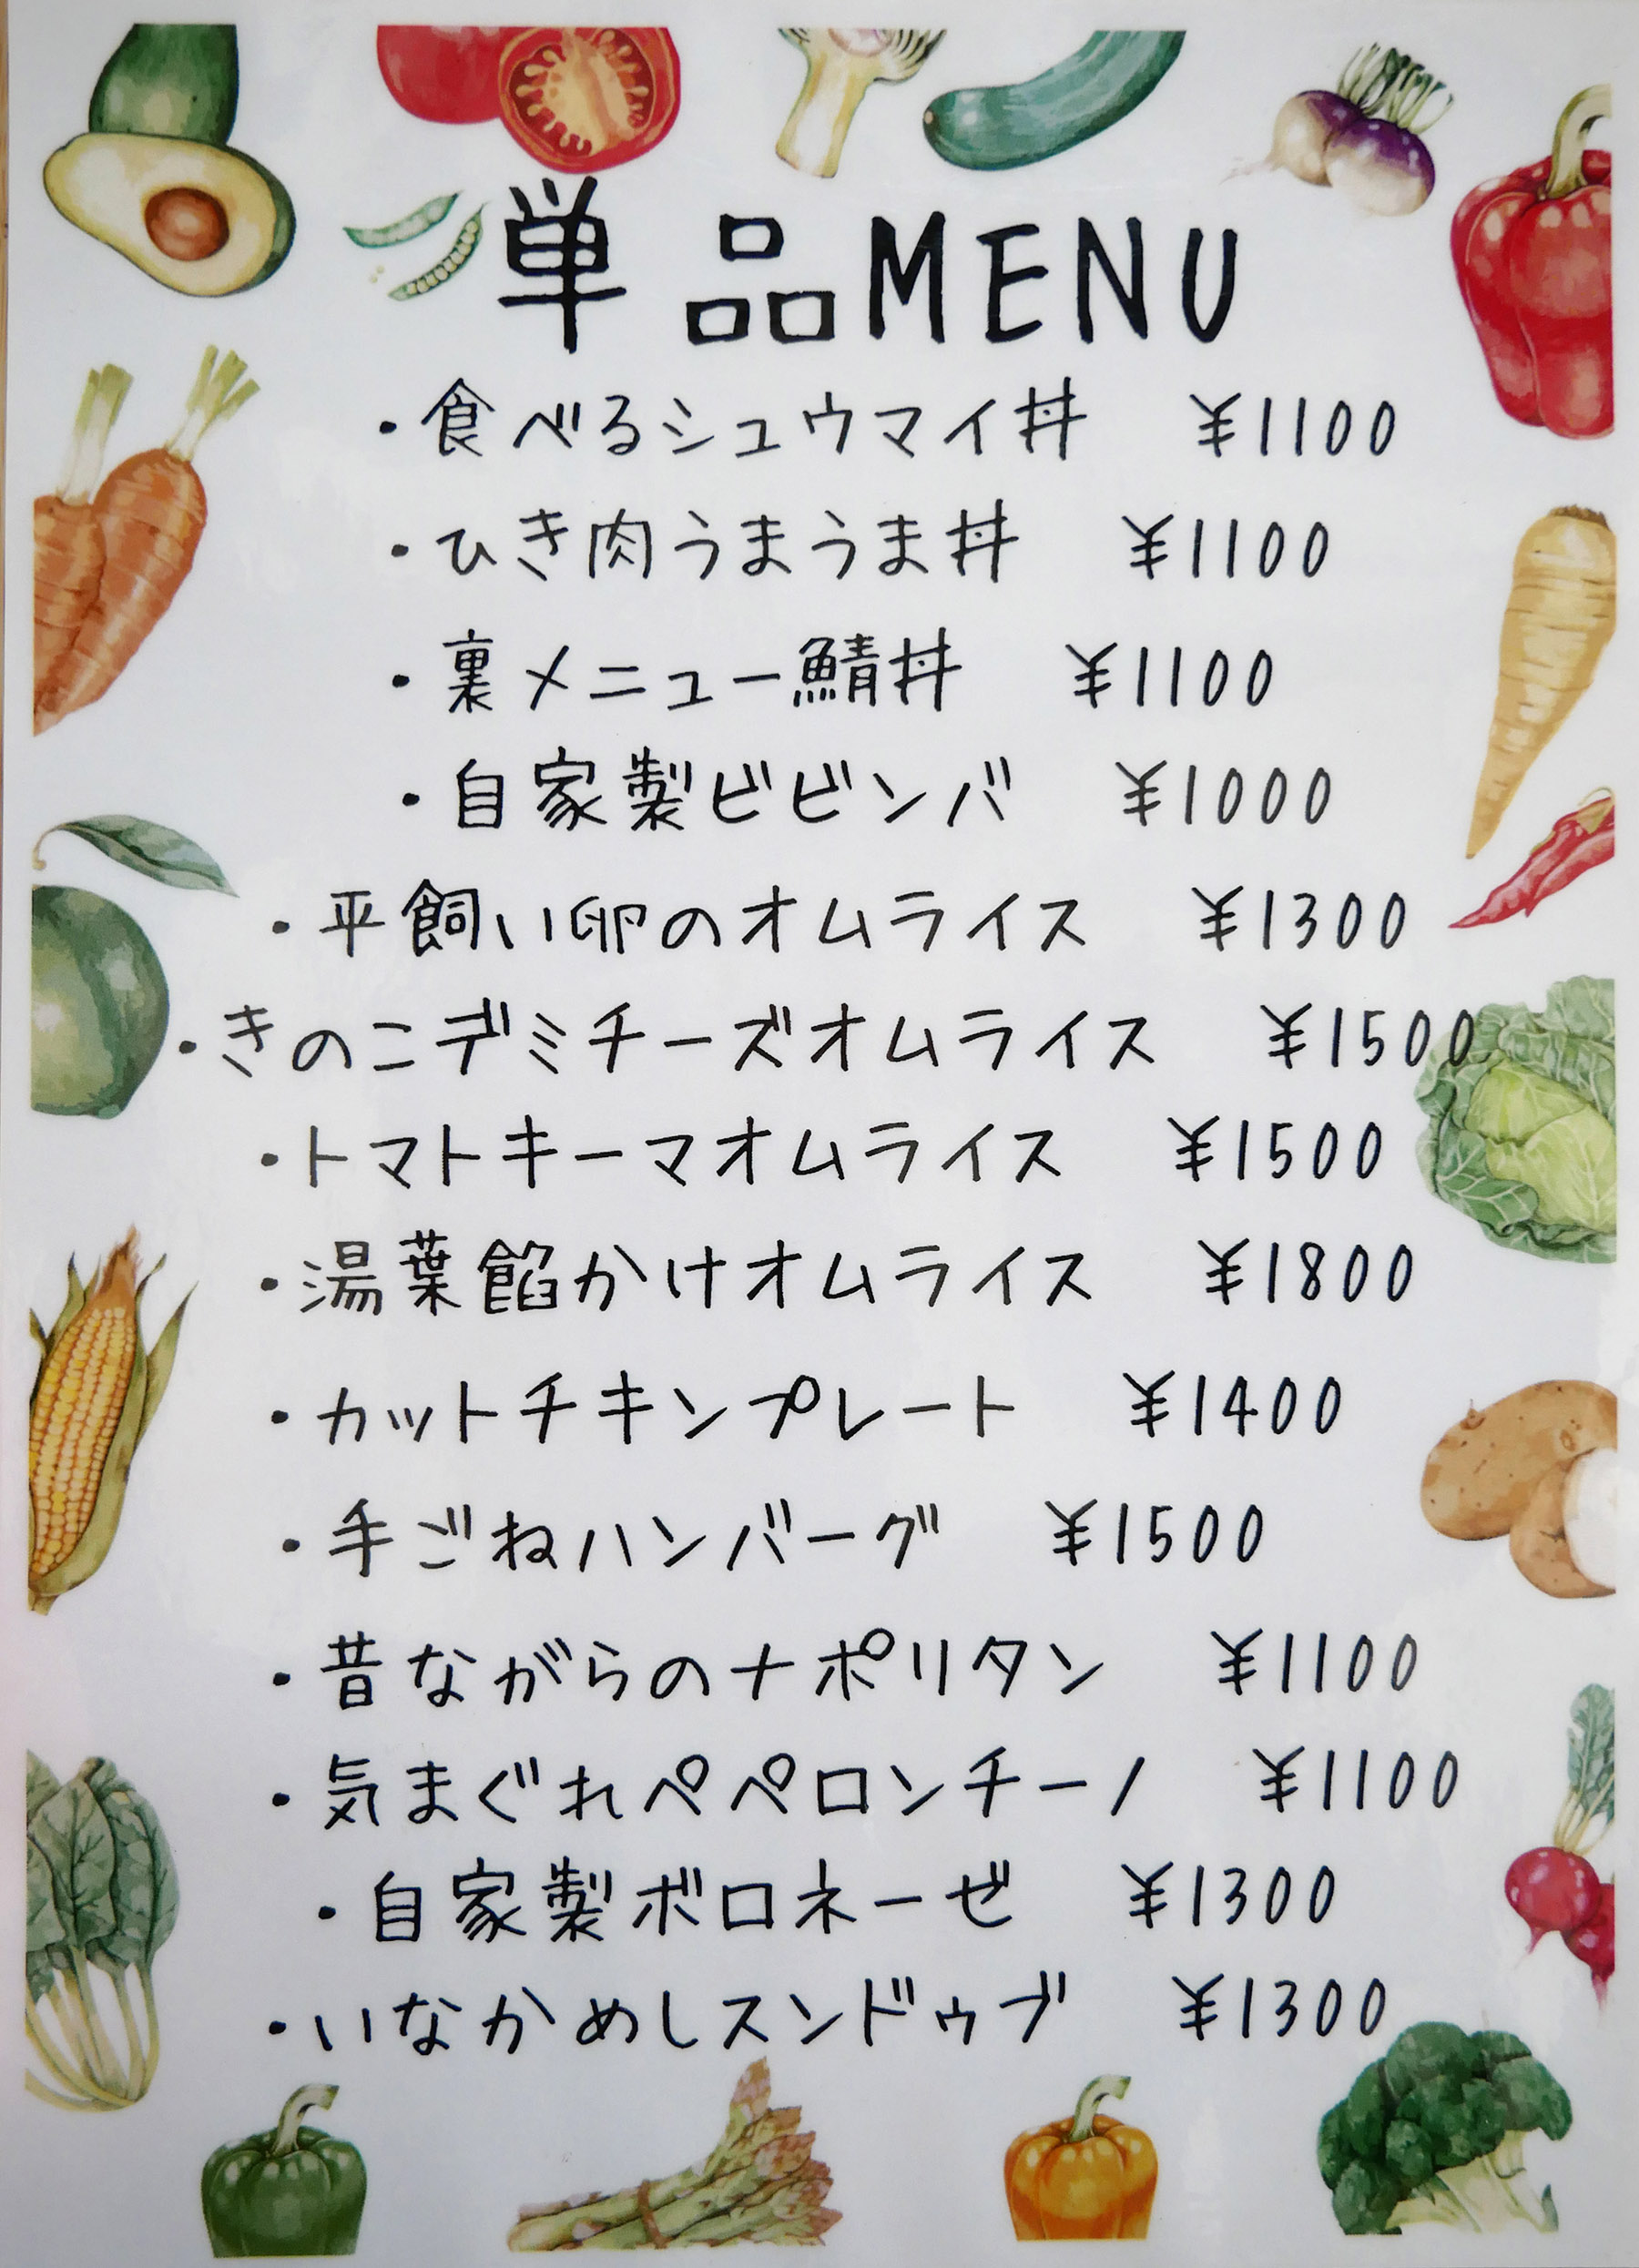 単品MENU
・食べるシュウマイ丼 ¥1100
・ひき肉うまうま丼 ¥1100
・裏メニュー鯖丼 ¥1100
・自家製ビビンバ ¥1000
・平飼い卵のオムライス ¥1300
・きのこデミチーズオムライス ¥1500
・トマトキーマオムライス ¥1500
・湯葉餡かけオムライス ¥1800
・カットチキンプレート ¥1400
・手ごねハンバーグ ¥1500
・昔ながらのナポリタン ¥1100
・気まぐれペペロンチーノ ¥1100
・自家製ボロネーゼ ¥1300
・いなかめしスンドゥブ ¥1300